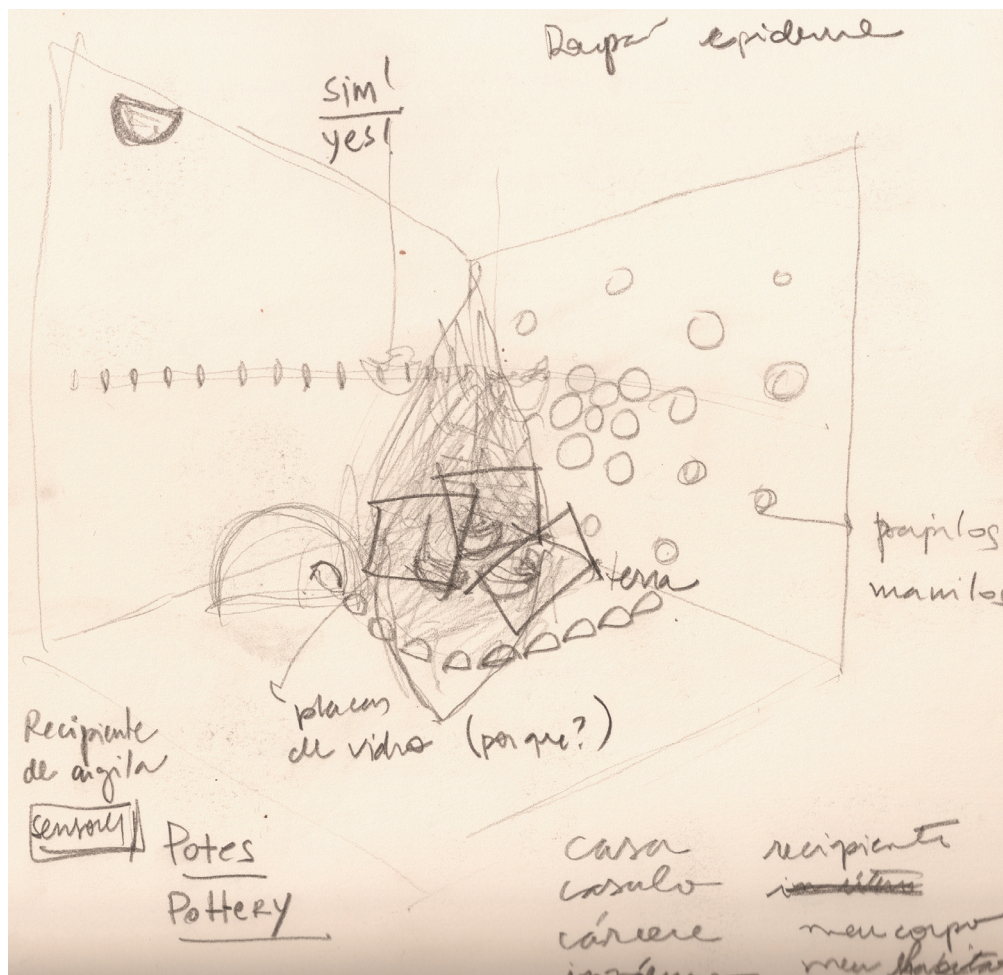 epiderme
sim!
yes!
terra
mamilos
placas
de vidro (por que?)
Recipiente
de argila
sensory
Potes
Pottery
casa
casulo
cárcere
recipiente
meu corpo
meu